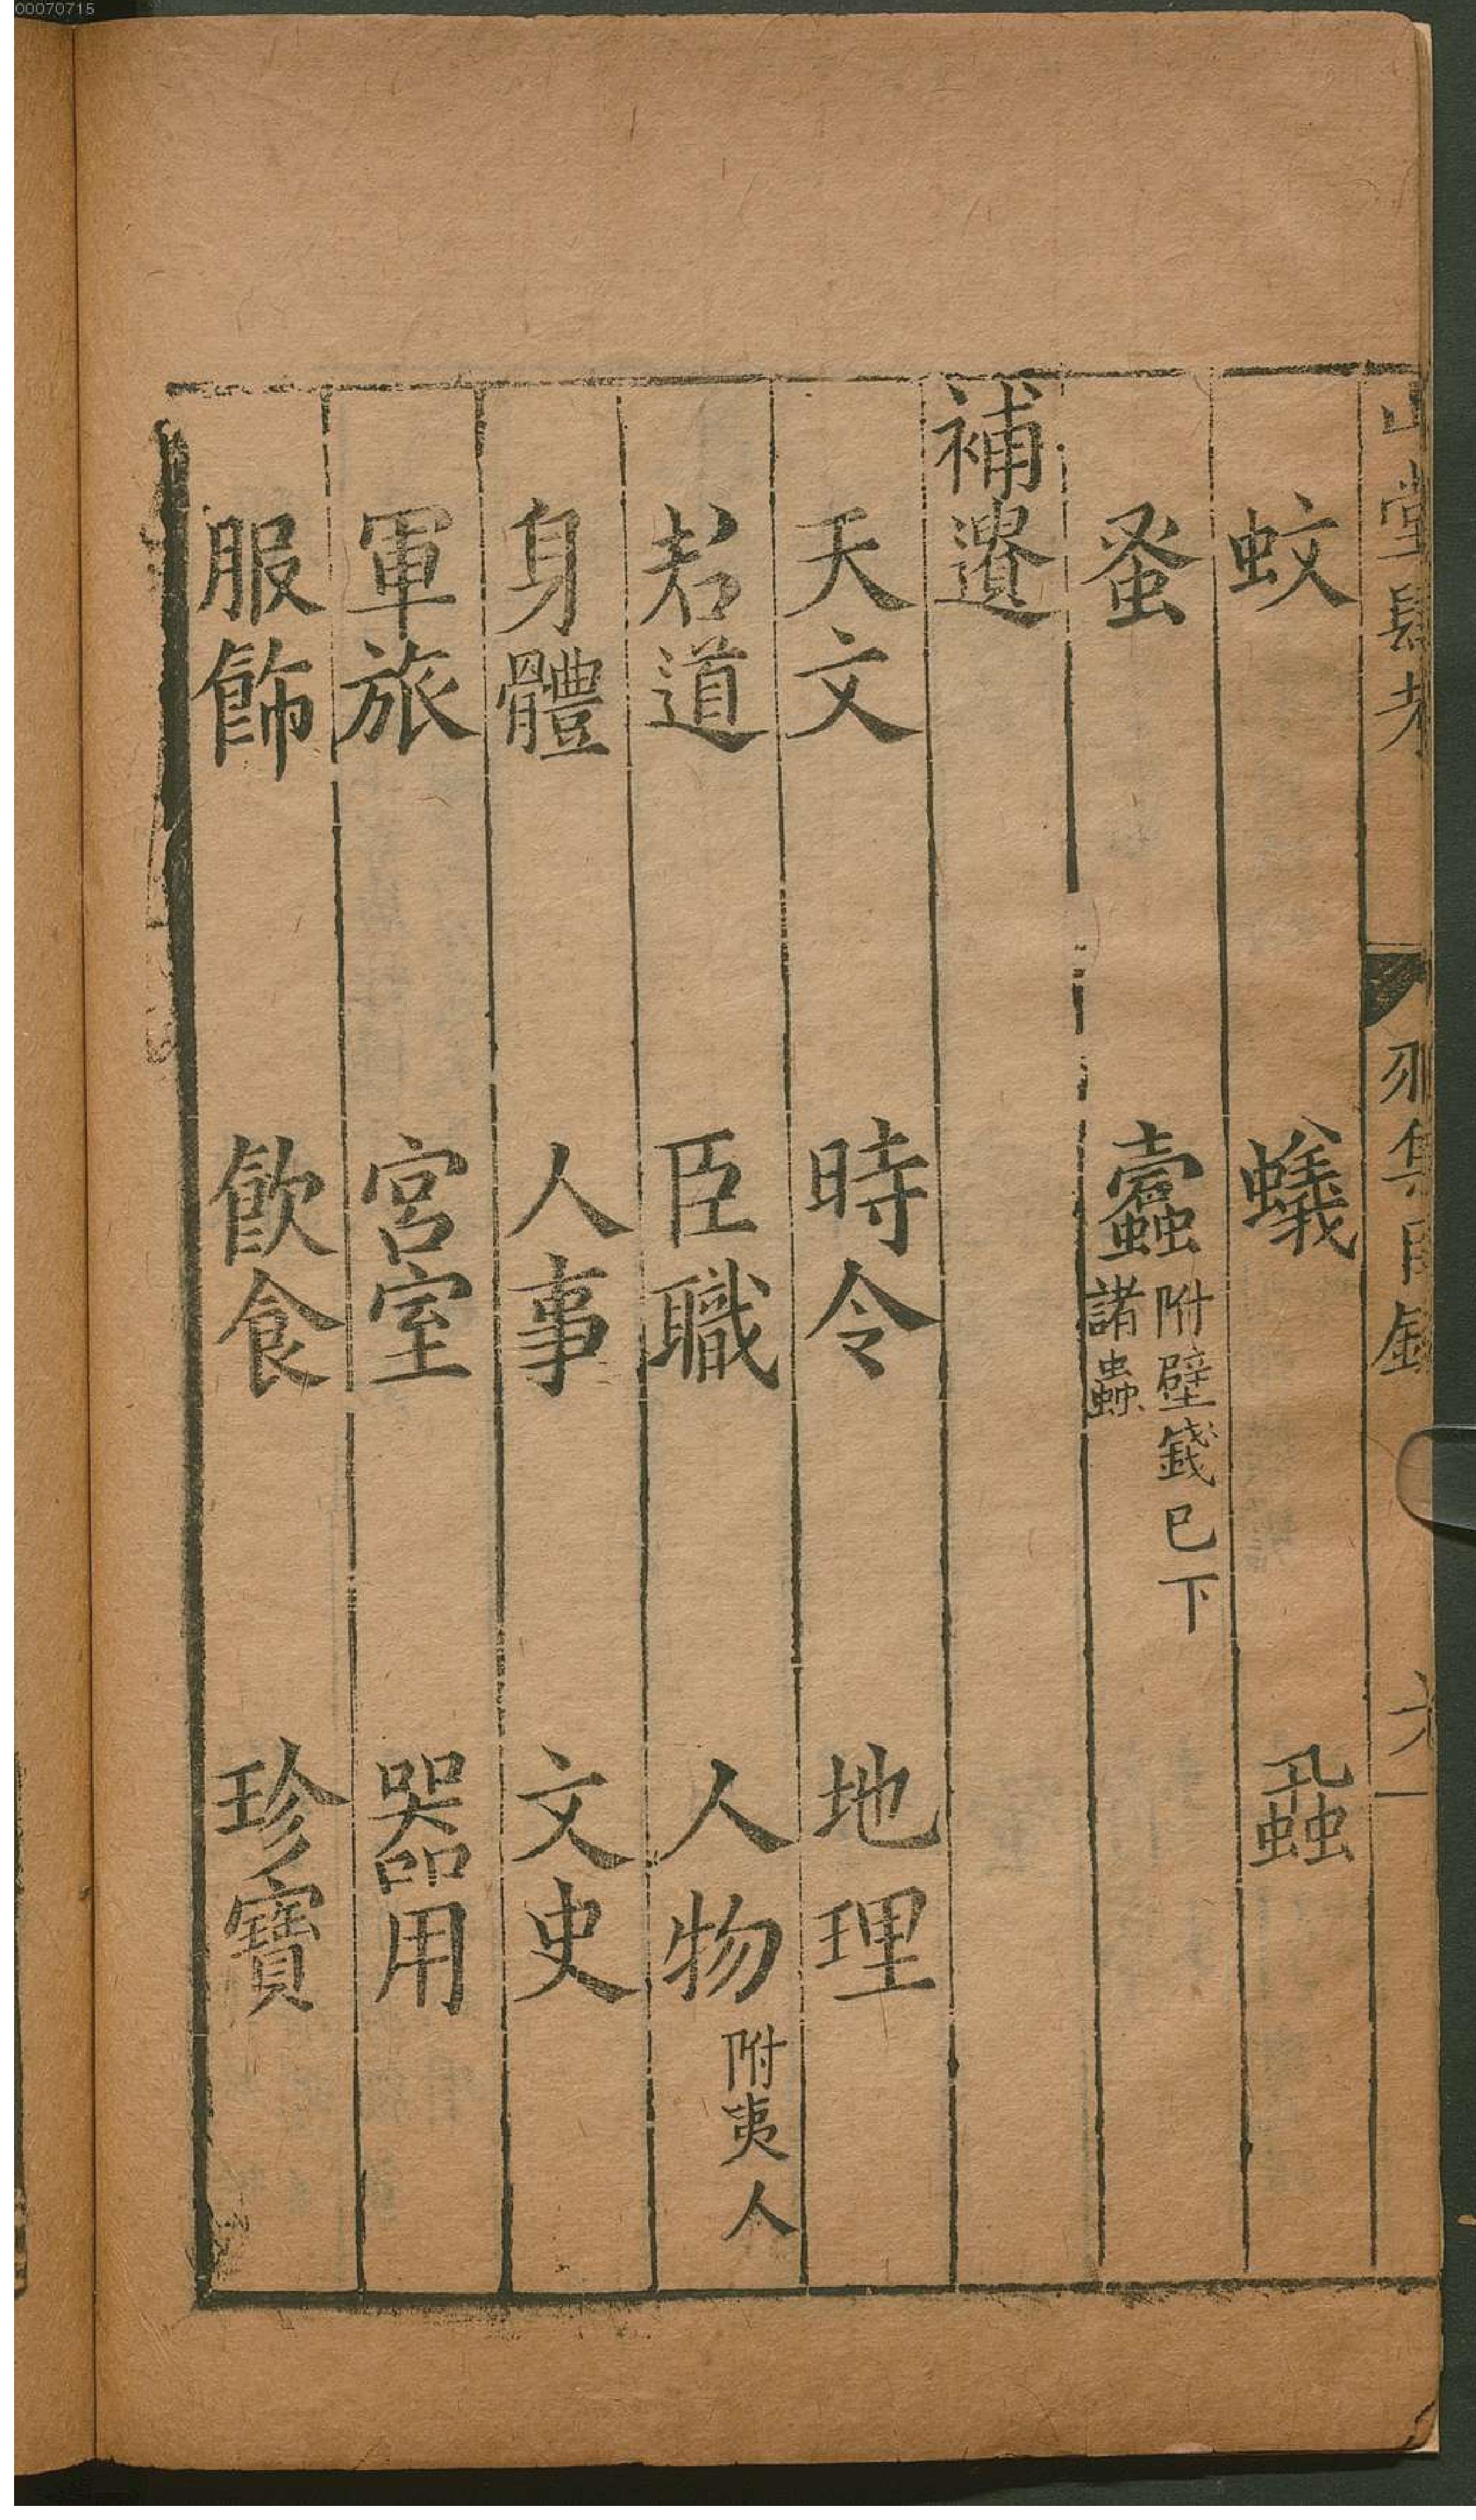 00070715
山堂肆考 羽集目錄
蚊 蟻 蝨
蚤 蠹 附壁錢已下諸蟲
補遺
天文 時令 地理
君道 臣職 人物 附夷人
身體 人事 文史
軍旅 宮室 器用
服飾 飲食 珍寶